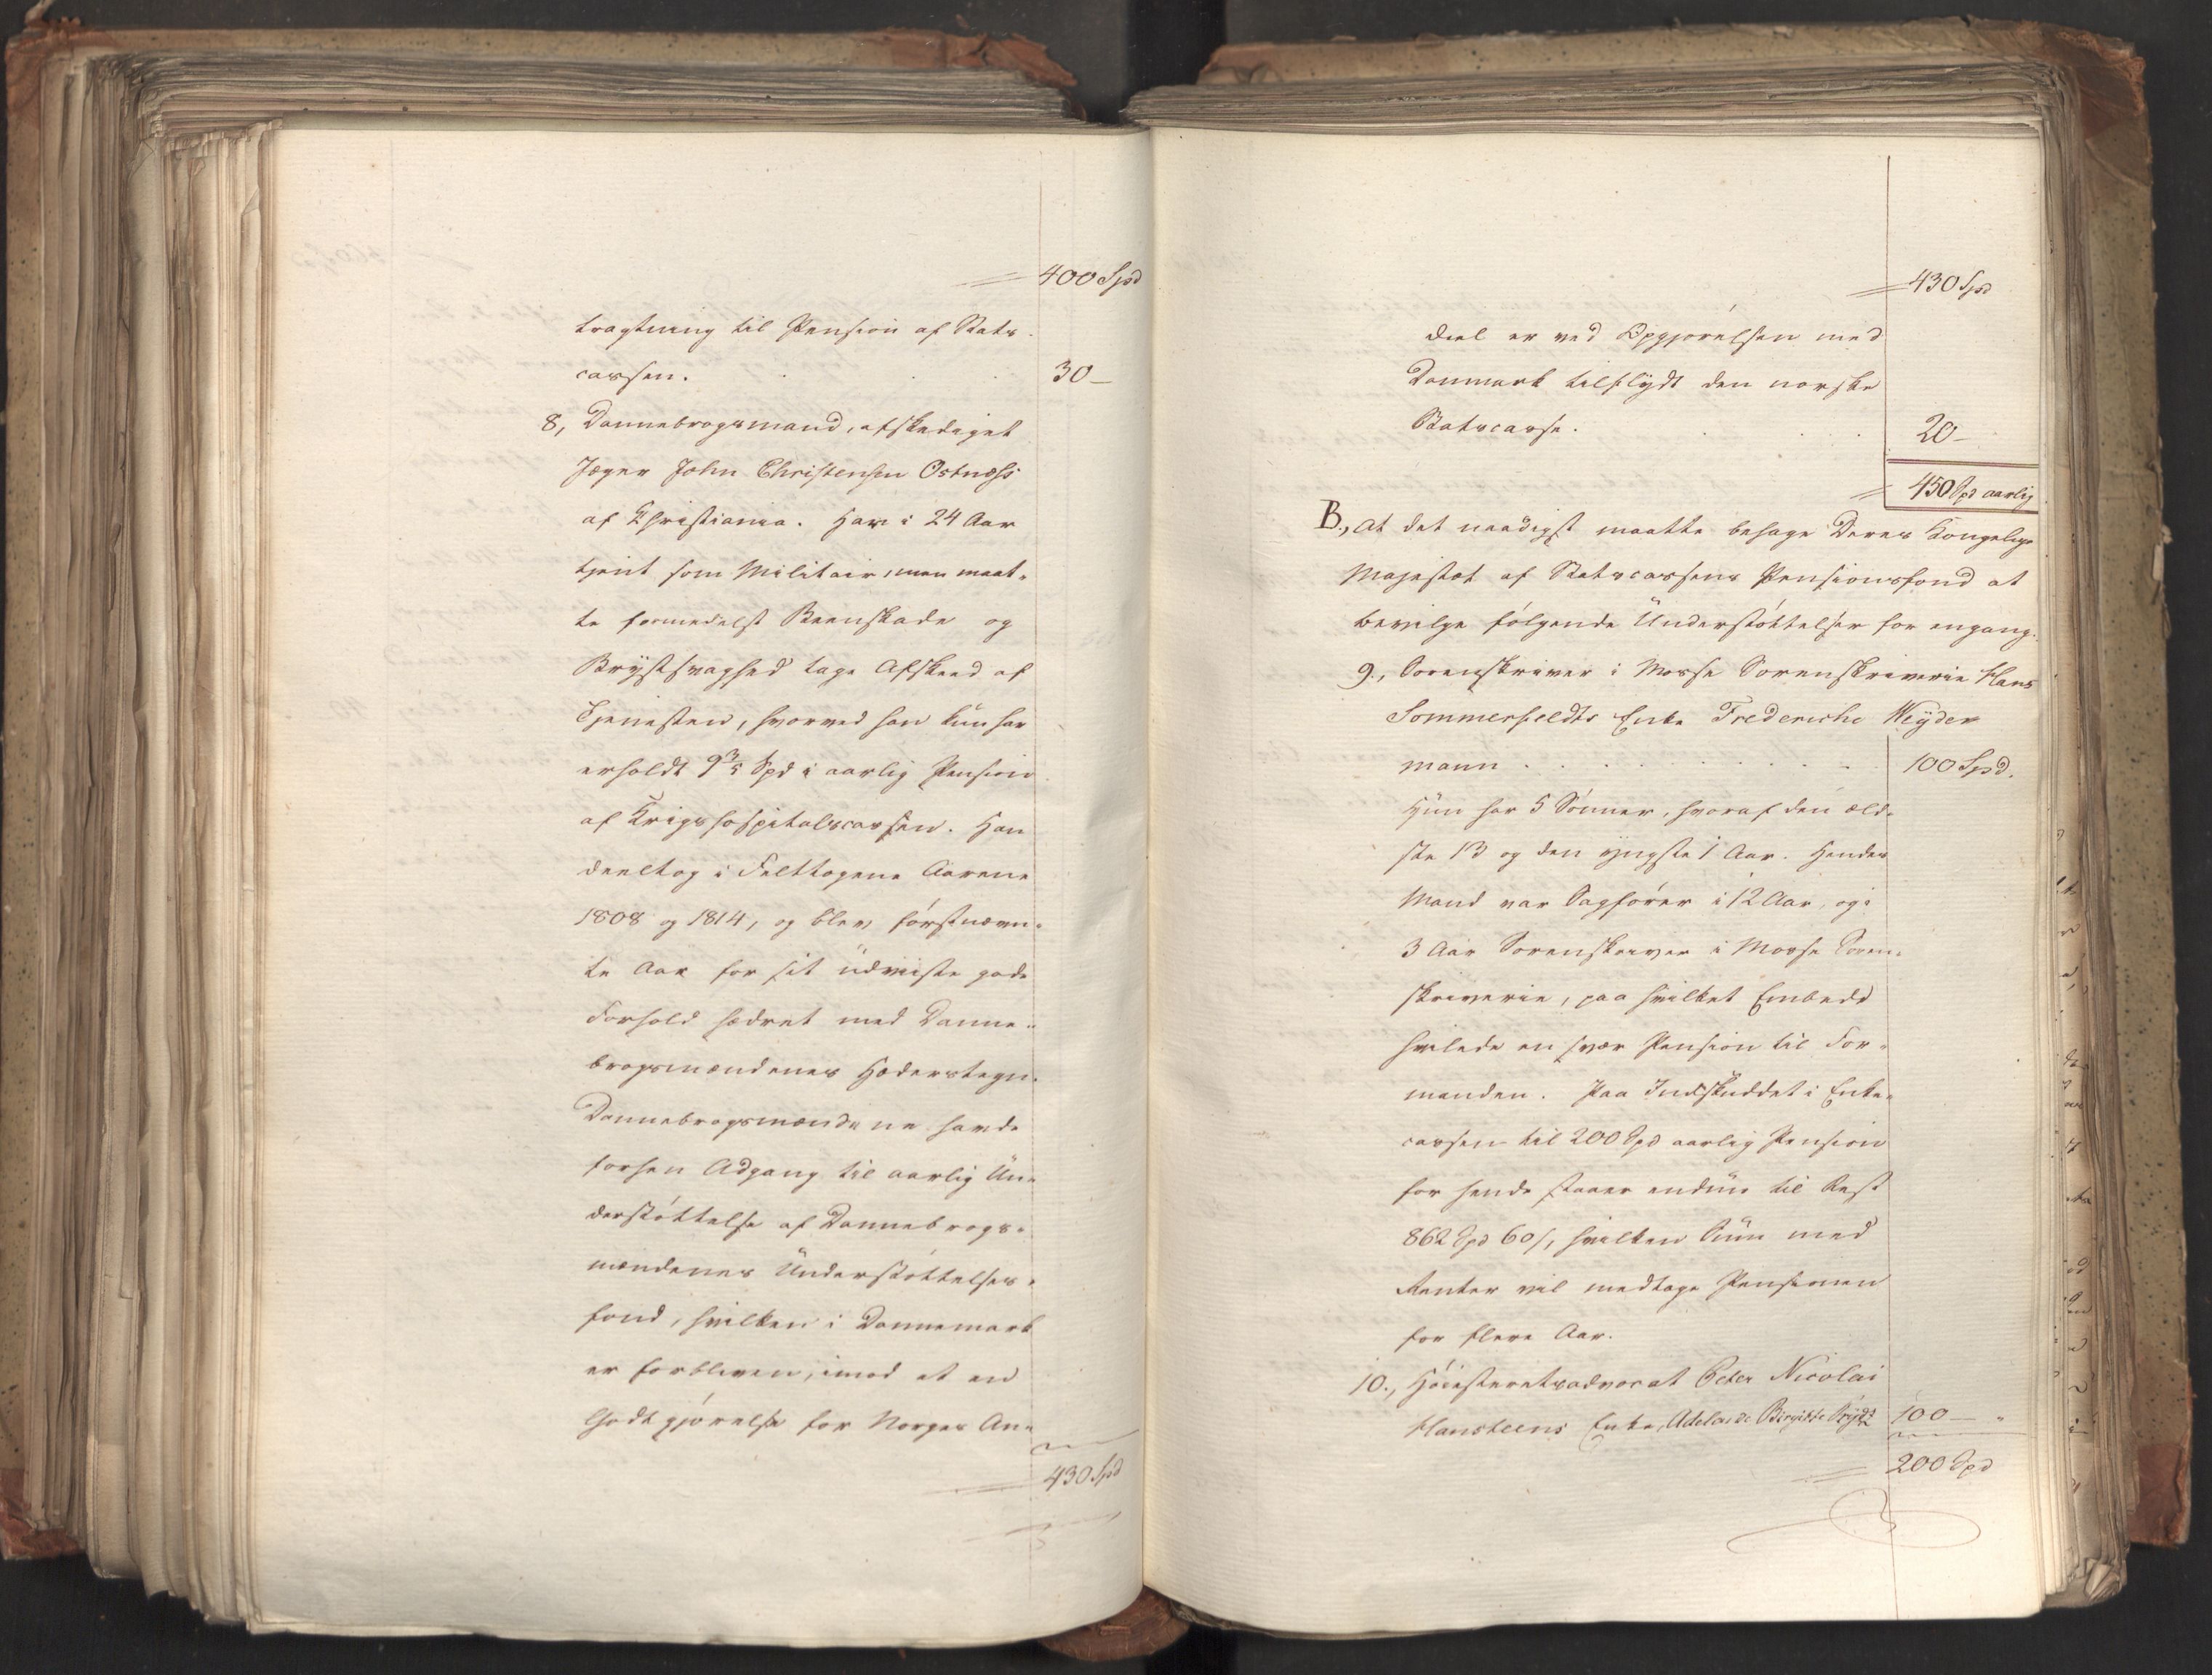 400 Spd
tragtning til Pension af Stats-
cassen. 30 –
8, Dannebrogsmand, afskediget
Jæger John Christensen Ostness
af Christiania. Har i 24 Aar
tjent som Militair, men maat-
te formedelst Beenskade og
Brystsvaghed tage Afskeed af
Tjenesten, hvorved han kun har
erholdt 9 3/5 Spd i aarlig Pension
af Krigshospitalscassen. Han
deeltog i Felttogene Aarene
1808 og 1814, og blev førstnævn-
te Aar for sit udviiste gode
Forhold hædret med Danne-
brogsmændenes Hæderstegn.
Dannebrogsmændene havde
forhen Adgang til aarlig Un-
derstøttelse af Dannebrogs-
mændenes Understøttelses-
fond, hvilken i Dannemark
er forbleven, imod at en
Godtgjørelse for Norges An-
430 Spd
430 Spd
deel er ved Opgjørelsen med
Danmark tilflydt den norske
Statscasse. 20 –
450 Spd aarlig
B., At det naadigst maatte behage Deres Kongelige
Majestæt af Statscassens Pensionsfond at
bevilge følgende Understøttelser for engang.
9., Sorenskriver i Mosse Sorenskriverie Hans
Sommerfeldts Enke Frederiche Weyder
mann 100 Spd.
Hun har 5 Sønner, hvoraf den æld-
ste 13 og den yngste 1 Aar. Hendes
Mand var Sagfører i 12 Aar, og i
3 Aar Sorenskriver i Mosse Soren-
skriverie, paa hvilket Embede
hvilede en svær Pension til For-
manden. Paa Indskuddet i Enke-
cassen til 200 Spd aarlig Pension
for hende staaer endnu til Rest
862 Spd 60 s, hvilken Sum med
Renter vil medtage Pensionen
for flere Aar.
10., Høiesteretsadvocat Peter Nicolai
Hansteens Enke, Adelaide Birgitte 100 – "
200 Spd